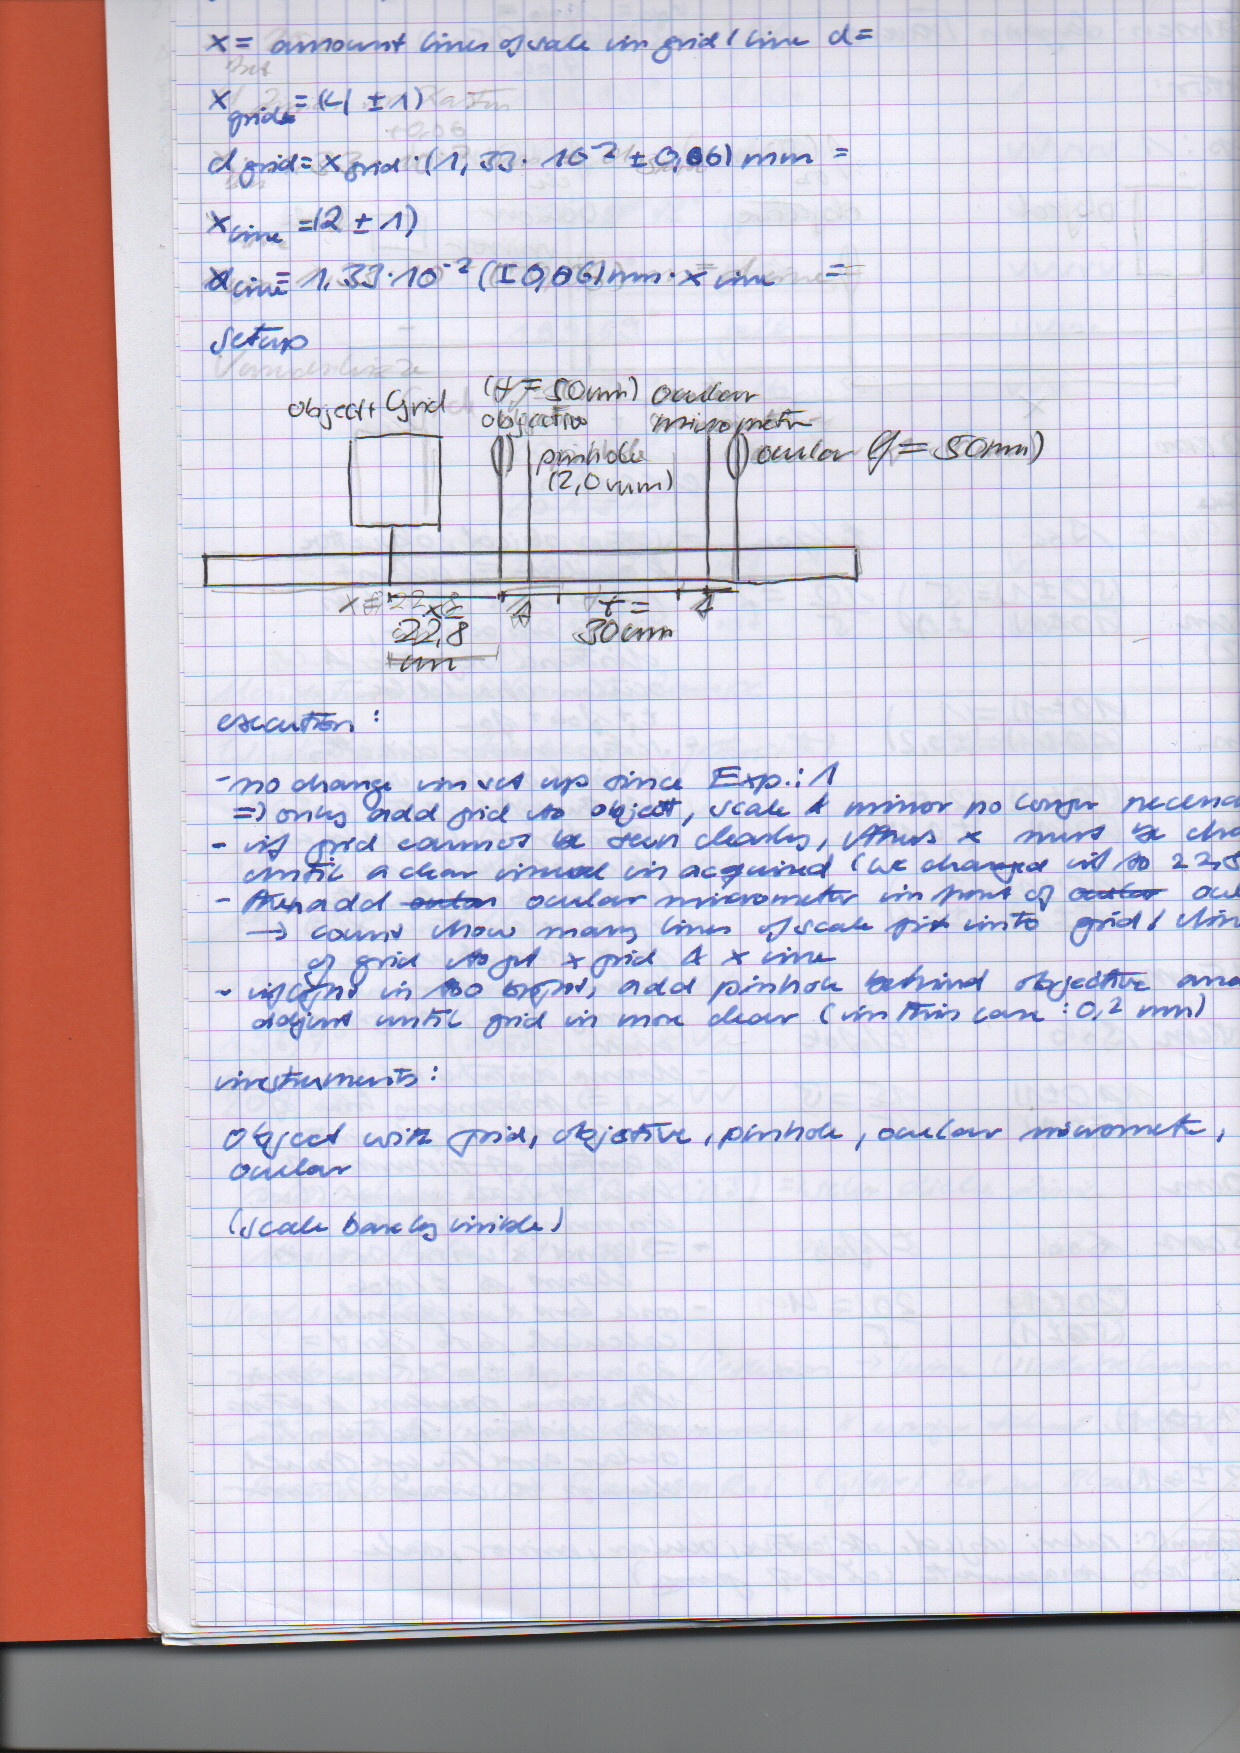 x = amount lines of scale in grid / line d =
x grid = (4 ± 1)
d grid = x grid · (1,33 · 10⁻² ± 0,06) mm =
x line = (2 ± 1)
d line = 1,33 · 10⁻² (± 0,06) mm · x line =
setup
object + Grid
(f = 50mm)
objective
pinhole
(2,0 mm)
ocular
micrometer
ocular (f = 50mm)
x =
22,8
cm
t =
30cm
execution:
- no change in set up since Exp.: 1
=> only add grid to object, scale & mirror no longer
- if grid cannot be seen clearly, thus x must be
until a clear visual is acquired (we changed it to 22,8
- then add ocular micrometer in front of
→ count how many lines of scale fit into grid /
of grid to get x grid & x line
- if light is too bright, add pinhole behind objective
adjust until grid is more clear (in this case : 0,2 mm)
instruments:
Object with grid, objective, pinhole, ocular micrometer,
ocular
(scale barely visible)